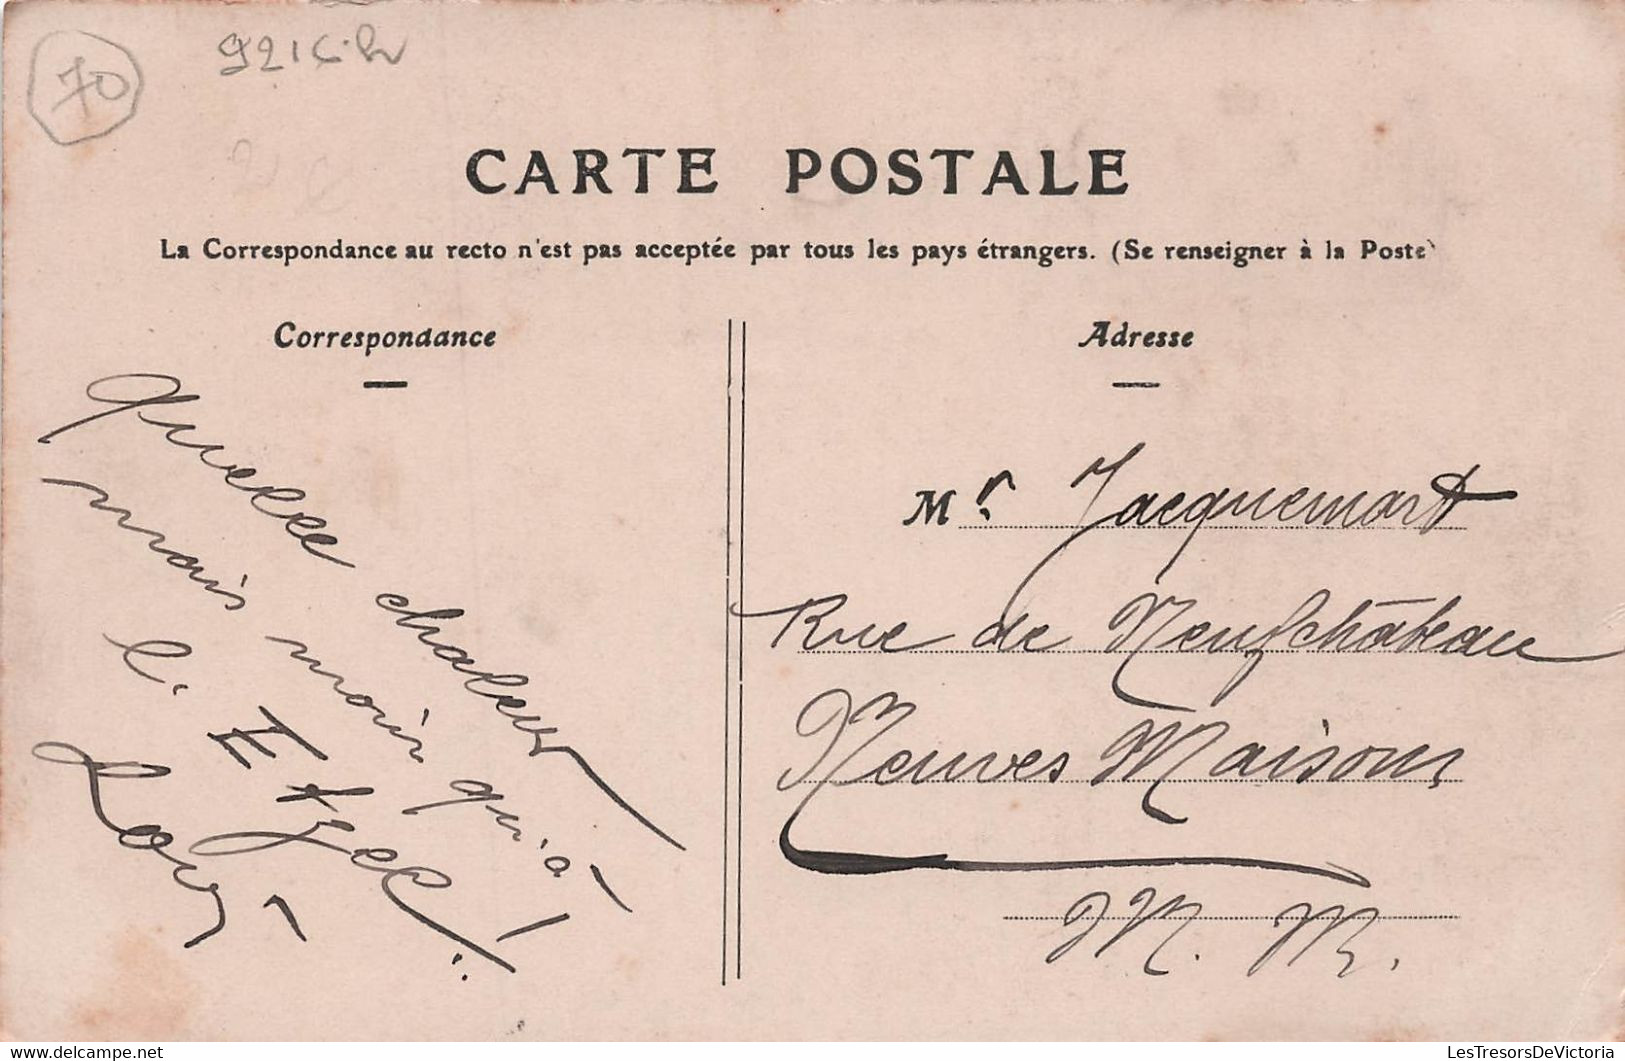 70
CARTE POSTALE
La Correspondance au recto n'est pas acceptée par tous les pays étrangers. (Se renseigner à la Poste)
Correspondance
Quelle chaleur
mais moins qu'à
l'
Louis
Adresse
Mr Jacquemart
Rue de Neufchâteau
Neuves Maisons
M. M.
www.delcampe.net
LesTresorsDeVictoria